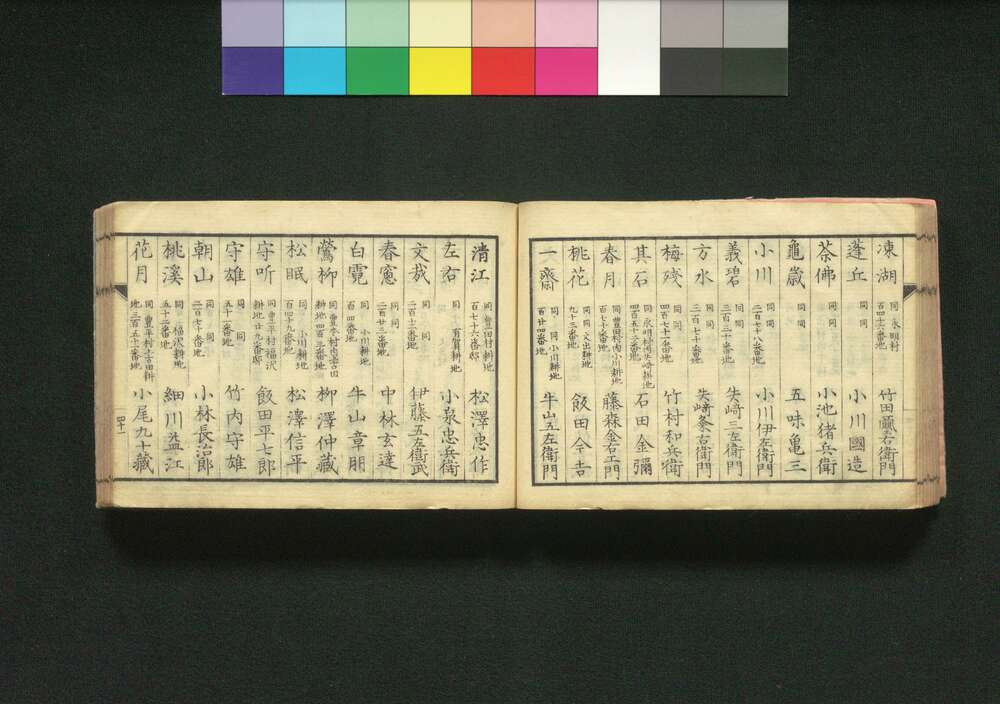 凍湖 同 永明村 百四十六番地 竹田彌右衛門
蓬丘 同 同 小川國造
茶佛 同 同 小池猪兵衛
龜歳 同 同 五味亀三
小川 同 同 二百七十八番地 小川伊左衛門
義碧 同 同 三百三十番地 矢﨑三左衛門
方水 同 同 三百七十番地 矢﨑粂右衛門
梅残 同 同 四百七十一番地 竹村和兵衛
其石 同 永明村内矢崎耕地 四百五十三番地 石田金彌
春月 同 豊田村内小川耕地 百七十番地 藤森金右エ門
桃花 同 同 文出耕地 九十三番地 飯田今吉
一齋 同 同 小川耕地 百廿四番地 牛山五左衛門
清江 同 豊田村耕地 百七十六番邸 松澤忠作
左右 同 有賀耕地 小泉忠兵衛
文哉 同 同 二百十二番地 伊藤五左衛武
春窓 同 同 二百廿三番地 中林玄達
白霓 同 同 小川耕地 百四番地 牛山章朋
鶯柳 同 豊平村内塩沢耕地 四百三番地 柳澤仲藏
松眠 同 小川耕地 百四十九番地 松澤信平
守听 同 豊平村福沢耕地 廿九番邸 飯田平七郎
守雄 同 同 五十一番地 竹内守雄
朝山 同 同 二百七十番地 小林長治郎
桃溪 同 福沢耕地 五十三番地 細川益江
花月 同 豊平村上古田耕地 三百五十二番地 小尾九十藏
四十一